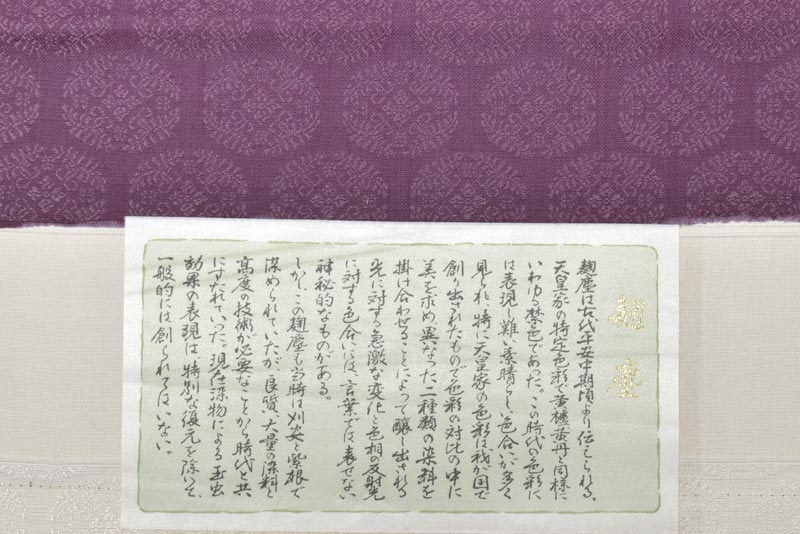 麹塵
麹塵は古代平安中期頃より伝えられる、
天皇家の特定色彩で黄櫨、黄丹と同様に
いわゆる禁色であった。この時代の色彩に
は表現し難い素晴らしい色合いが多く
見られ、特に天皇家の色彩は我が国で
創り出されたもので色彩の対比の中に
美を求め、異なった二種類の染料を
掛け合わせることによって醸し出される
光に対する急激な変化と色相の反射光
に対する色合いには、言葉では表せない
神秘的なものがある。
しかし、この麹塵も当時は刈安と紫根で
染められていたが、良質、大量の染料と
高度の技術が必要なことから時代と共
にすたれていった。現在染物による玉虫
効果の表現は、特別な復元を除いて、
一般的には創られてはいない。